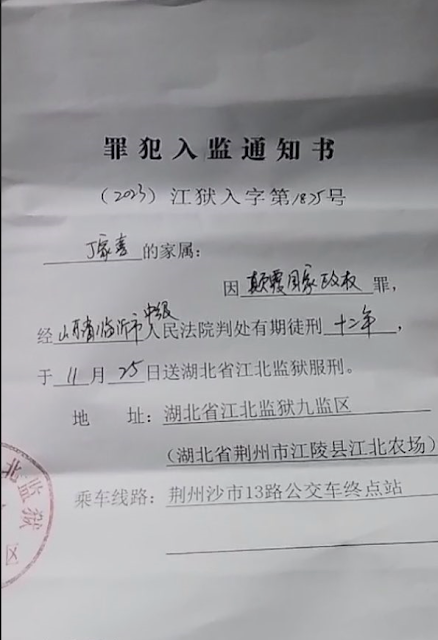 罪犯入监通知书
(2023)江狱入字第1825号
丁家喜的家属:
因颠覆国家政权罪,
经山东省临沂市中级人民法院判处有期徒刑十二年,
于11月25日送湖北省江北监狱服刑。
地 址:湖北省江北监狱九监区
(湖北省荆州市江陵县江北农场)
乘车线路:荆州沙市13路公交车终点站
北监狱
区